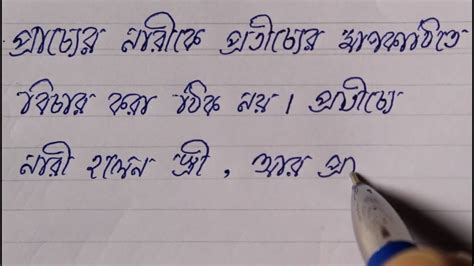 প্রাচ্যের নারীকে প্রতীচ্যের মাপকাঠিতে
বিচার করা ঠিক নয়। প্রতীচ্যে
নারী হলেন স্ত্রী, আর প্রা